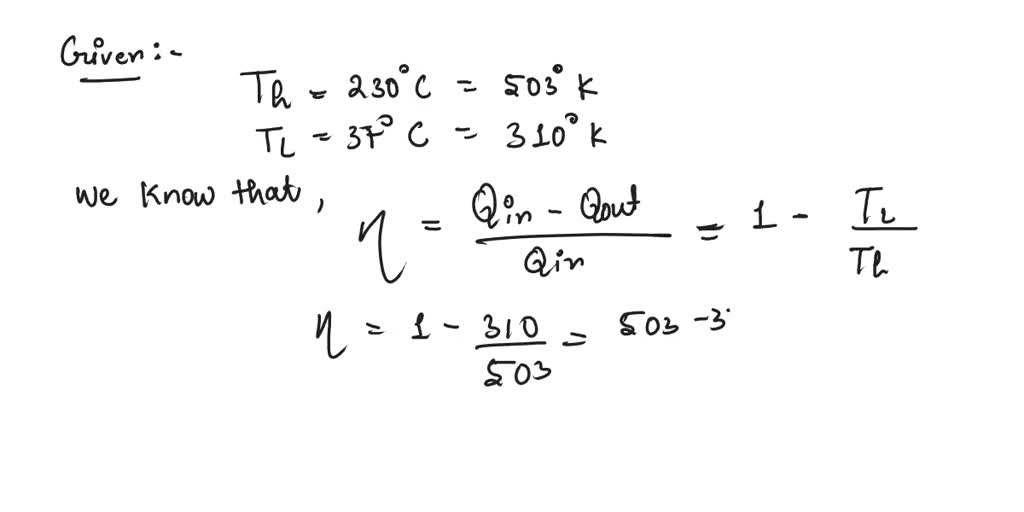 Given :-
Th = 230°C = 503° K
TL = 37° C = 310° K
We know that,
η = (Qin - Qout)/Qin = 1 - TL/Th
η = 1 - 310/503 = 503 - 3